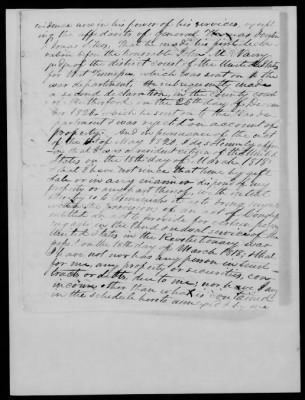 evidence now in his power of his services, except
the affidavits of General Thomas
Thomas That he made his first decla
ration before the Honorable John
judge of the district court of the United States
for West Tennessee which was sent on to the
war department. He subsequently made
a second declaration in the County Court
of Rutherford on the 26th day of
1826 which he sent on to the War De
partment & was rejected on account of
property. And in pursuance of the act
of the 1st of May 1820 I do solemnly affirm
that I was a resident citizen of the United
States on the 18th day of March 1818
that I have not since that time by gift
sale or in any manner disposed of my
property or any part thereof with intent
thereby so to diminish it as to bring myself
within the provisions of an act of Congress
entitled an act to provide for certain persons
engaged in the land and naval service of the
United States in the Revolutionary War
passed on the 18th day of March 1818, & that
I have not nor has any person in trust
for me any property or securities, con
tracts or debts due to me; nor have I any
income other than what is contained
in the schedule hereto annexed & by me